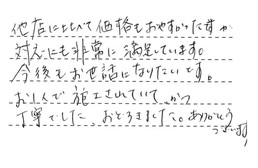 他店にくらべて価格もおやすかったですが
対応にも非常に満足しています。
今後もお世話になりたいです。
お1人で施工されていて、かつ
丁寧でした。おどろきました。ありがとう
ございます！